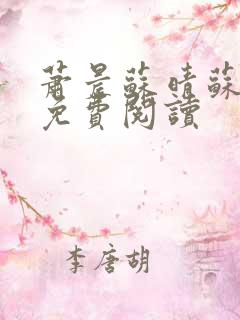 蕭景蘇晴蘇
免費閱讀
李唐胡